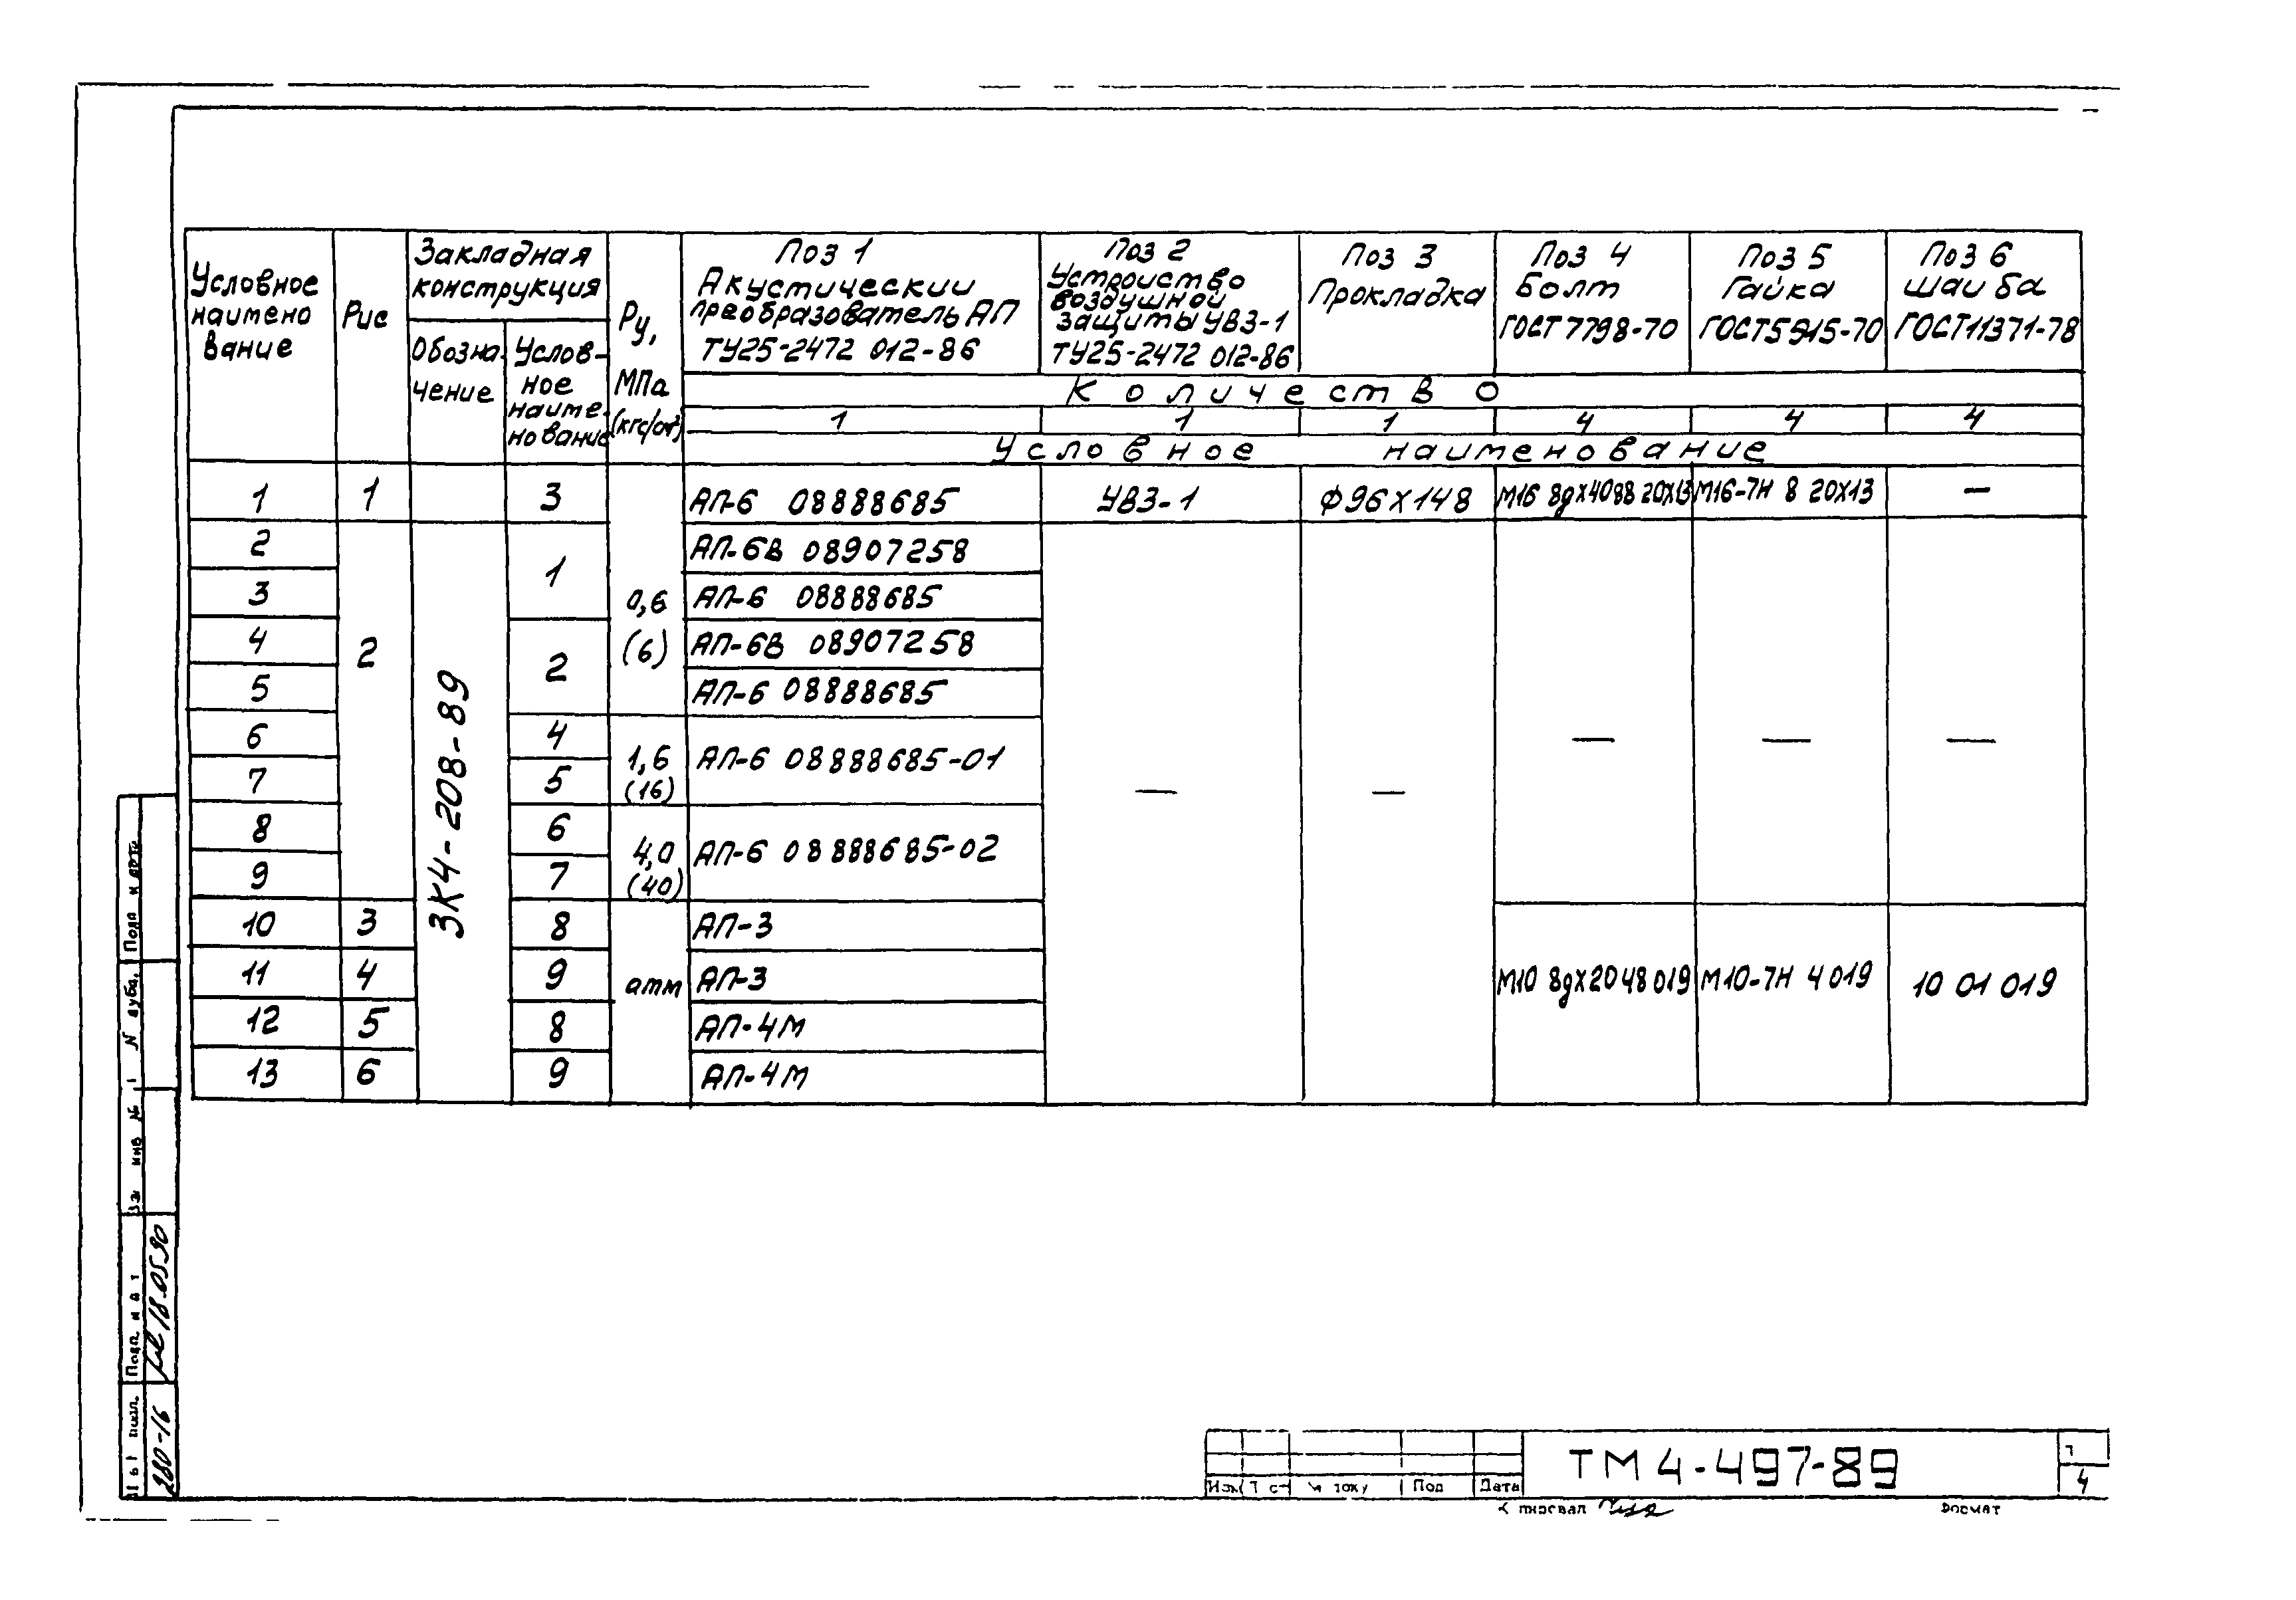 Условное наимено вание
Рис
Закладная конструкция
Обозна- чение
Услов- ное наиме- нование
Ру, МПа (кгс/см²)
Поз 1 Акустический преобразователь АП ТУ25-2472 012-86
Поз 2 Устройство воздушной защиты УВЗ-1 ТУ25-2472 012-86
Поз 3 Прокладка
Поз 4 Болт ГОСТ 7798-70
Поз 5 Гайка ГОСТ 5915-70
Поз 6 шайба ГОСТ 11371-78
Количество
1 1 1 4 4 4
Условное наименование
1 1 3 АП-6 08888685 УВЗ-1 Ф96х148 М16 8gх4088 20Х13 М16-7Н 8 20Х13 —
2 1 АП-6В 08907258
3 0,6 АП-6 08888685
4 2 (6) АП-6В 08907258
2
5 АП-6 08888685
ЗК4-208-89
6 4 — — —
1,6 (16) АП-6 08888685-01
7 5 — —
8 6
4,0 (40) АП-6 08888685-02
9 7
10 3 8 АП-3
11 4 9 атм АП-3 М10 8gх2048 019 М10-7Н 4 019 10 01 019
12 5 8 АП-4М
13 6 9 АП-4М
Подп
N дубл.
инв №
Подп. и д т
18.05.90
подл.
280-16
ТМ 4-497-89
4
Изм
Под
Дата
Формат